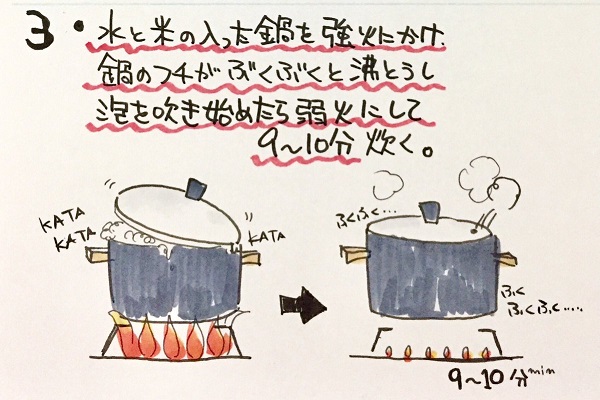 3. 水と米の入った鍋を強火にかけ、
鍋のフチがぶくぶくと沸とうし
泡を吹き始めたら弱火にして
9〜10分 炊く。
KATA
KATA
KATA
ふくふく…
ふく
ふくふく……
9〜10分min